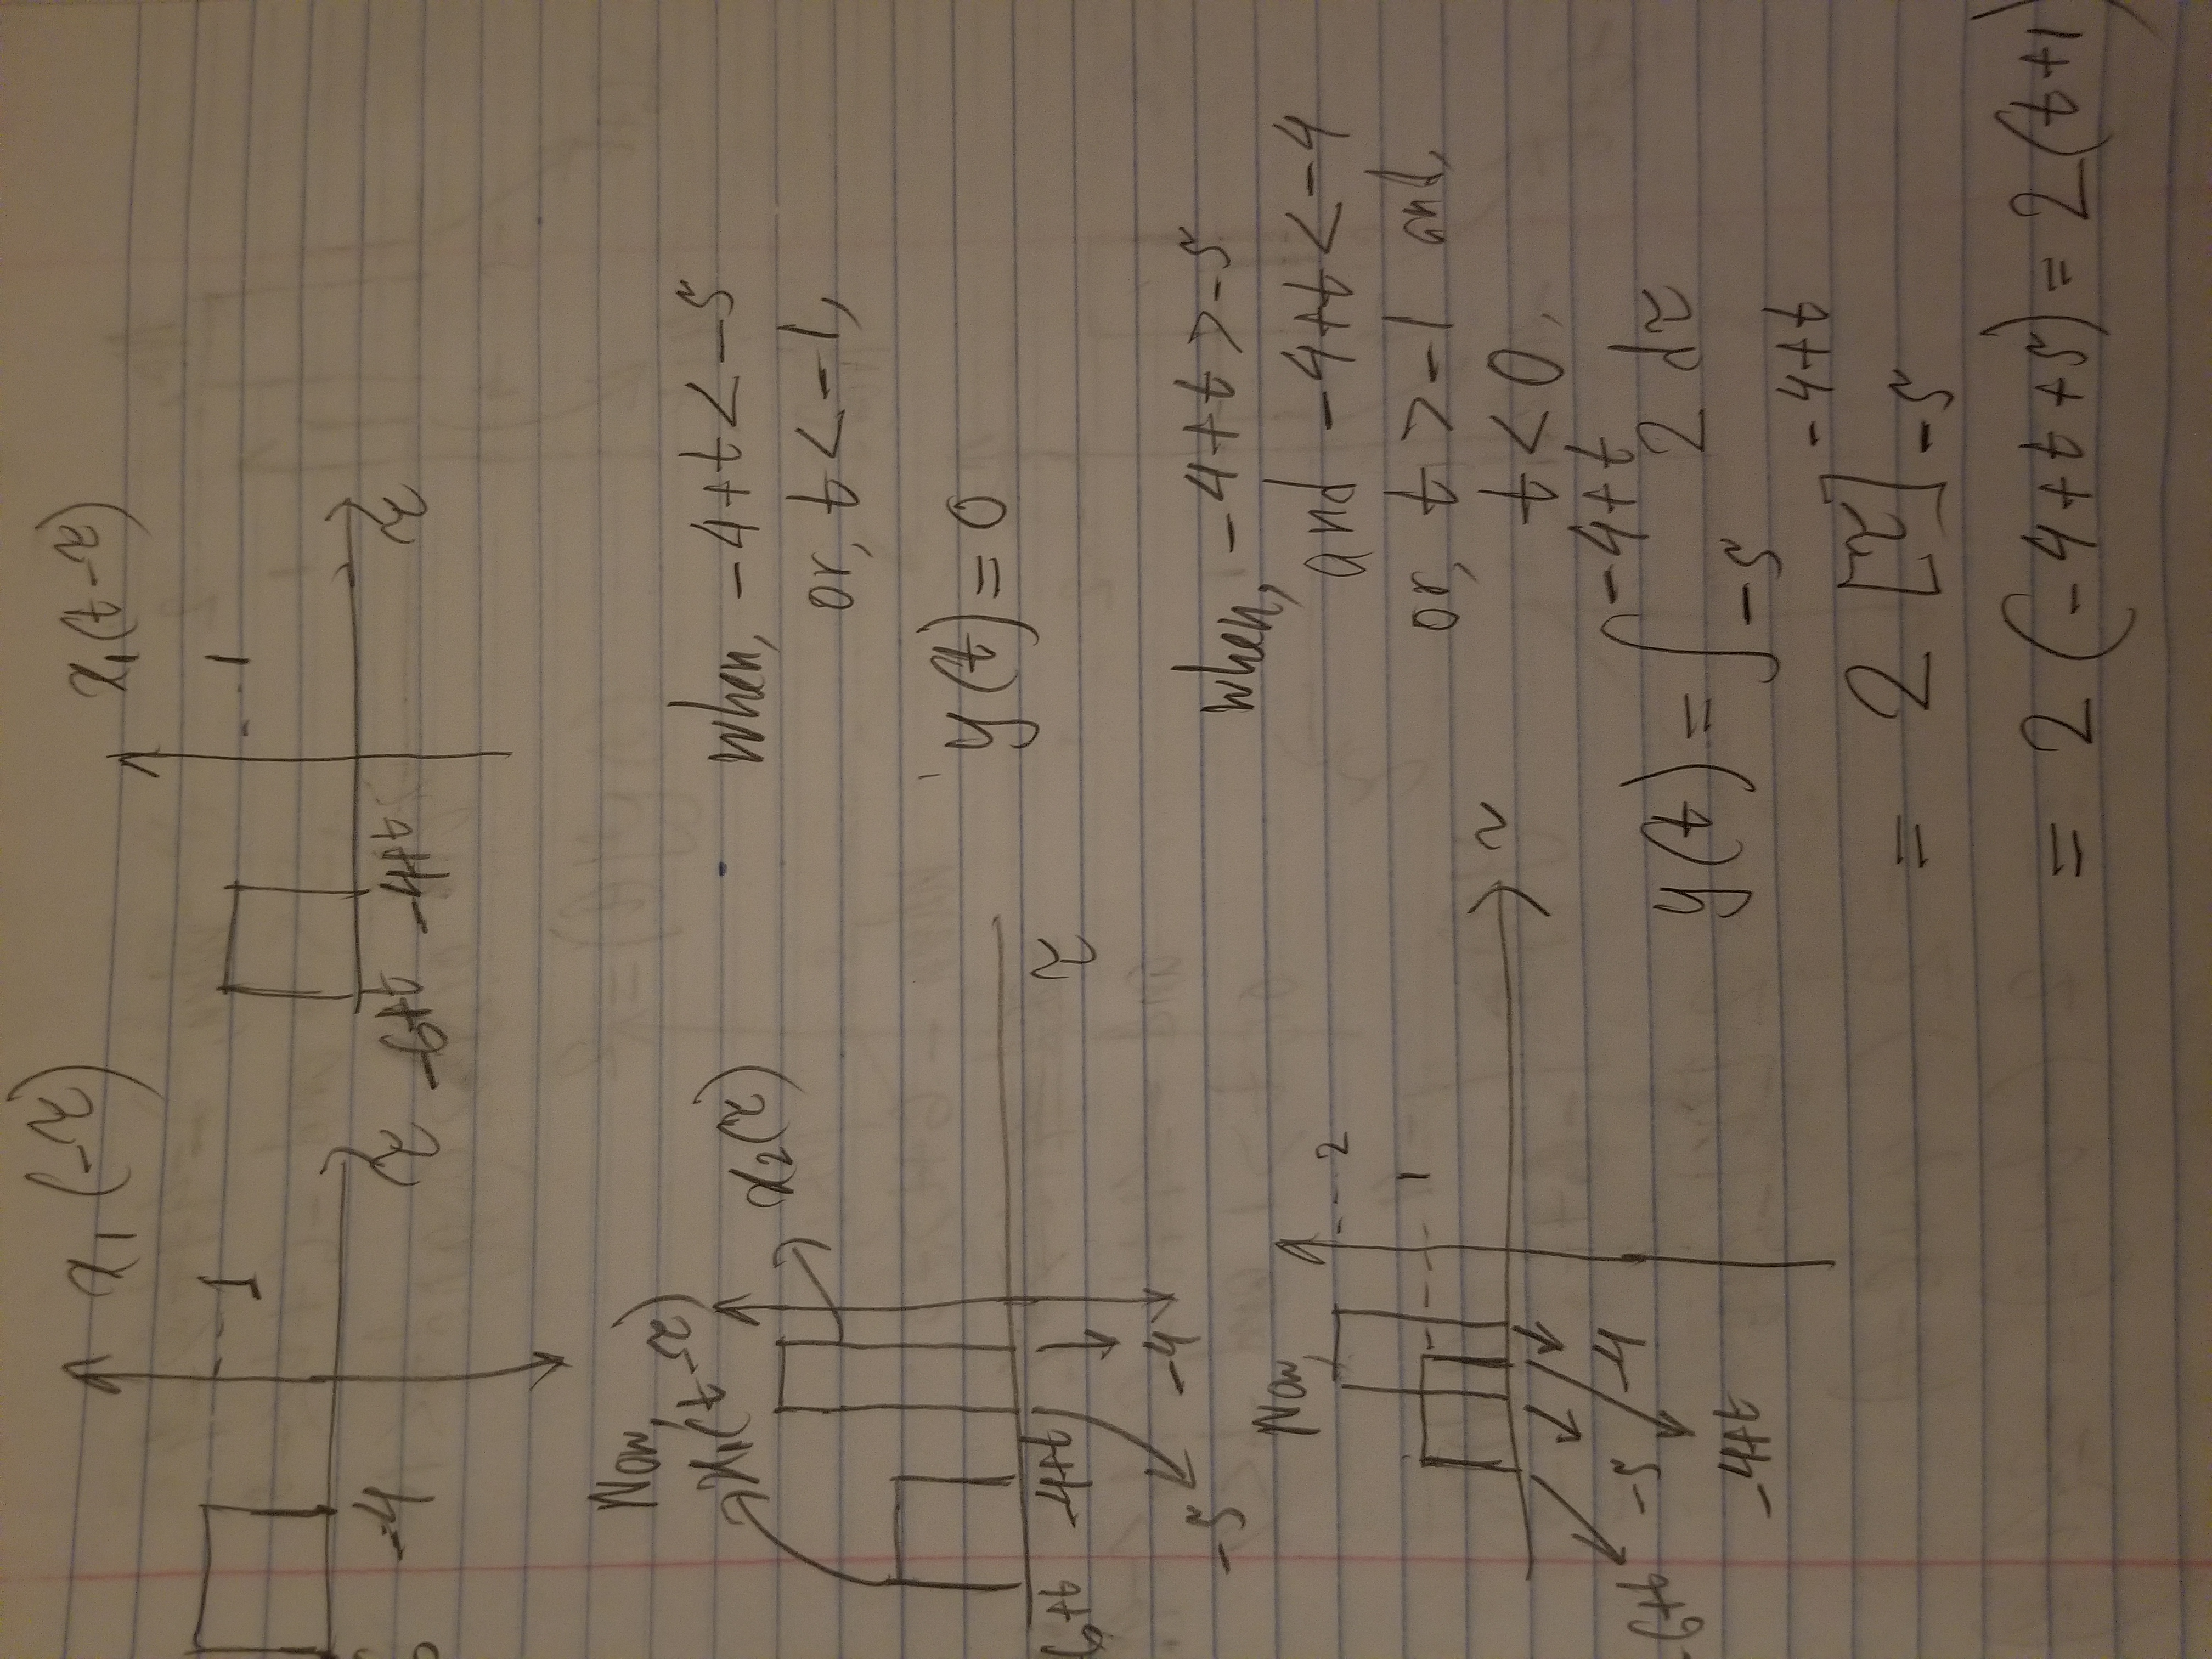 x₁(-τ)
x₁(t-τ)
1
-4
τ
1
-6+t
-4+t
τ
Now,
x₁(t-τ)
x₂(τ)
6+t
-4+t
τ
-5
-4
when, -4+t < -5
or, t < -1,
y(t) = 0
Now,
2
1
τ
-6+t
-5
-4
-4+t
when, -4+t > -5
and -4+t < -4
or, t > -1 and,
t < 0,
y(t) = ∫_{-5}^{-4+t} 2 dτ
= 2 [τ]_{-5}^{-4+t}
= 2 (-4+t+5) = 2(t+1)